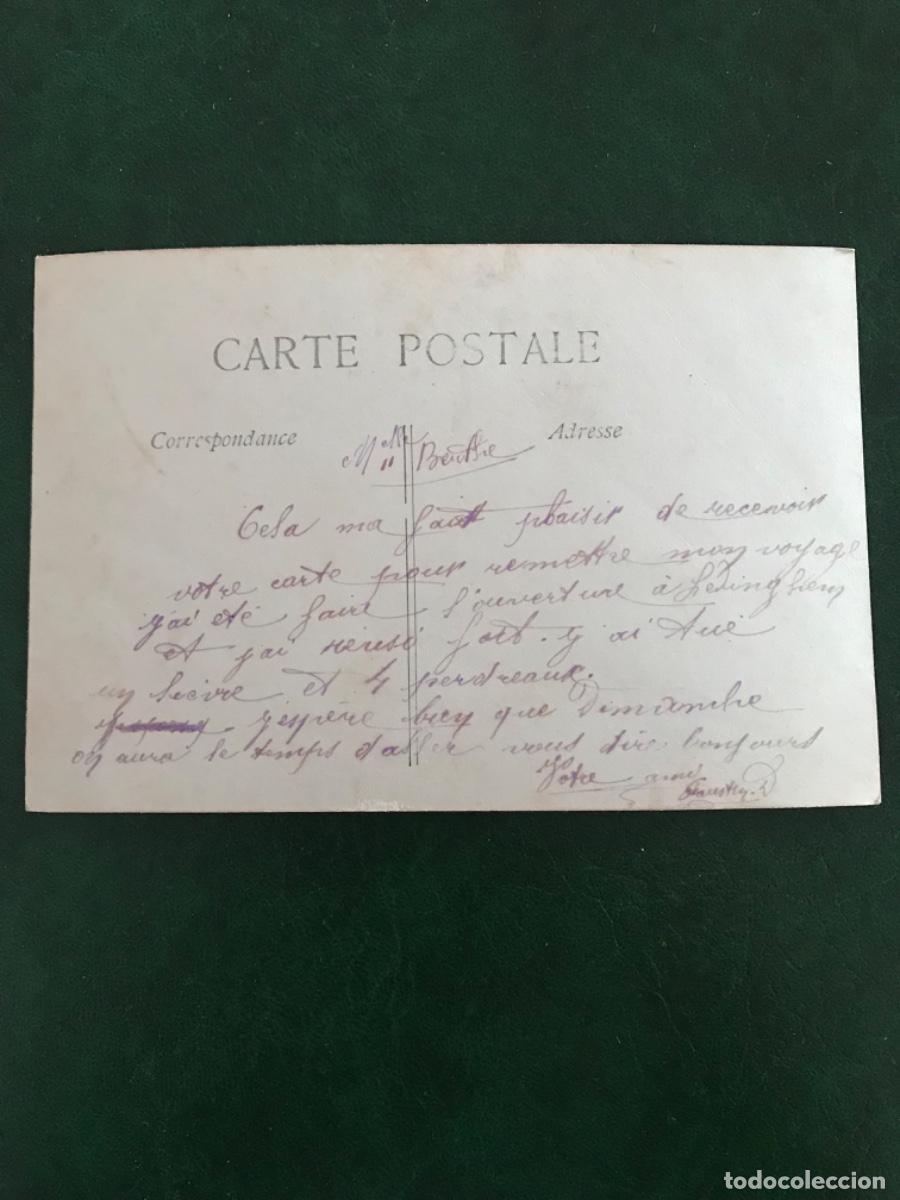 CARTE POSTALE
Correspondance
Adresse
Mlle Berthe
Cela ma fait plaisir de recevoir
votre carte pour remettre mon voyage
j'ai été faire l'ouverture à
et j'ai réussi fort. j'ai tué
un lièvre et 4 perdreaux.
j'espère bien que Dimanche
on aura le temps d'aller vous dire bonjours
Votre ami
todocoleccion